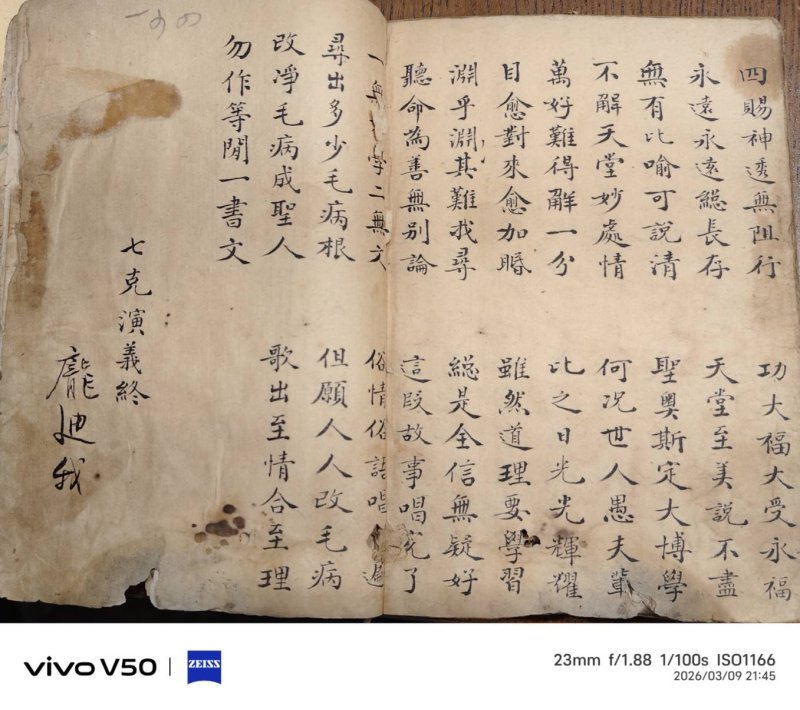 四賜神透無阻行　功大福大受永福
永遠永遠總長存　天堂至美説不盡
無有比喻可説清　聖奧斯定大博學
不解天堂妙處情　何况世人愚夫輩
萬好難得解一分　比之日光光輝耀
目愈對來愈加昏　雖然道理要學習
淵乎淵其難我尋　総是全信無疑好
聽命為善無别論　這段故事唱完了
一無 學二無文　俗情俗語唱 遍
尋出多少毛病根　但願人人改毛病
改凈毛病成聖人　歌出至情合至理
勿作等閒一書文
七克演義終
龐迪我
vivo V50 | ZEISS
23mm f/1.88 1/100s ISO1166
2026/03/09 21:45